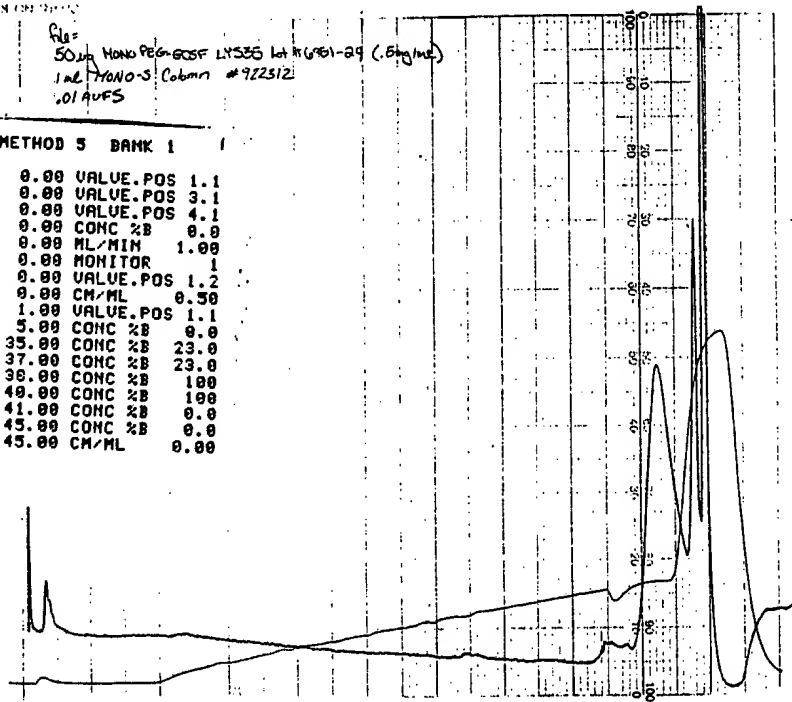 50 µg MONO PEG-GCSF LYS35 Lot # 6951-29 (.5mg/ml)
1 ml MONO-S Column #922312
.01 AUFS
METHOD 5 BANK 1 1
0.00 VALVE.POS 1.1
0.00 VALVE.POS 3.1
0.00 VALVE.POS 4.1
0.00 CONC %B 0.0
0.00 ML/MIN 1.00
0.00 MONITOR 1
0.00 VALVE.POS 1.2
0.00 CM/ML 0.50
1.00 VALVE.POS 1.1
5.00 CONC %B 0.0
35.00 CONC %B 23.0
37.00 CONC %B 23.0
38.00 CONC %B 100
40.00 CONC %B 100
41.00 CONC %B 0.0
45.00 CONC %B 0.0
45.00 CM/ML 0.00
100 0
10
80 20
70 30
40
50
40
30
20
10 90
0 100